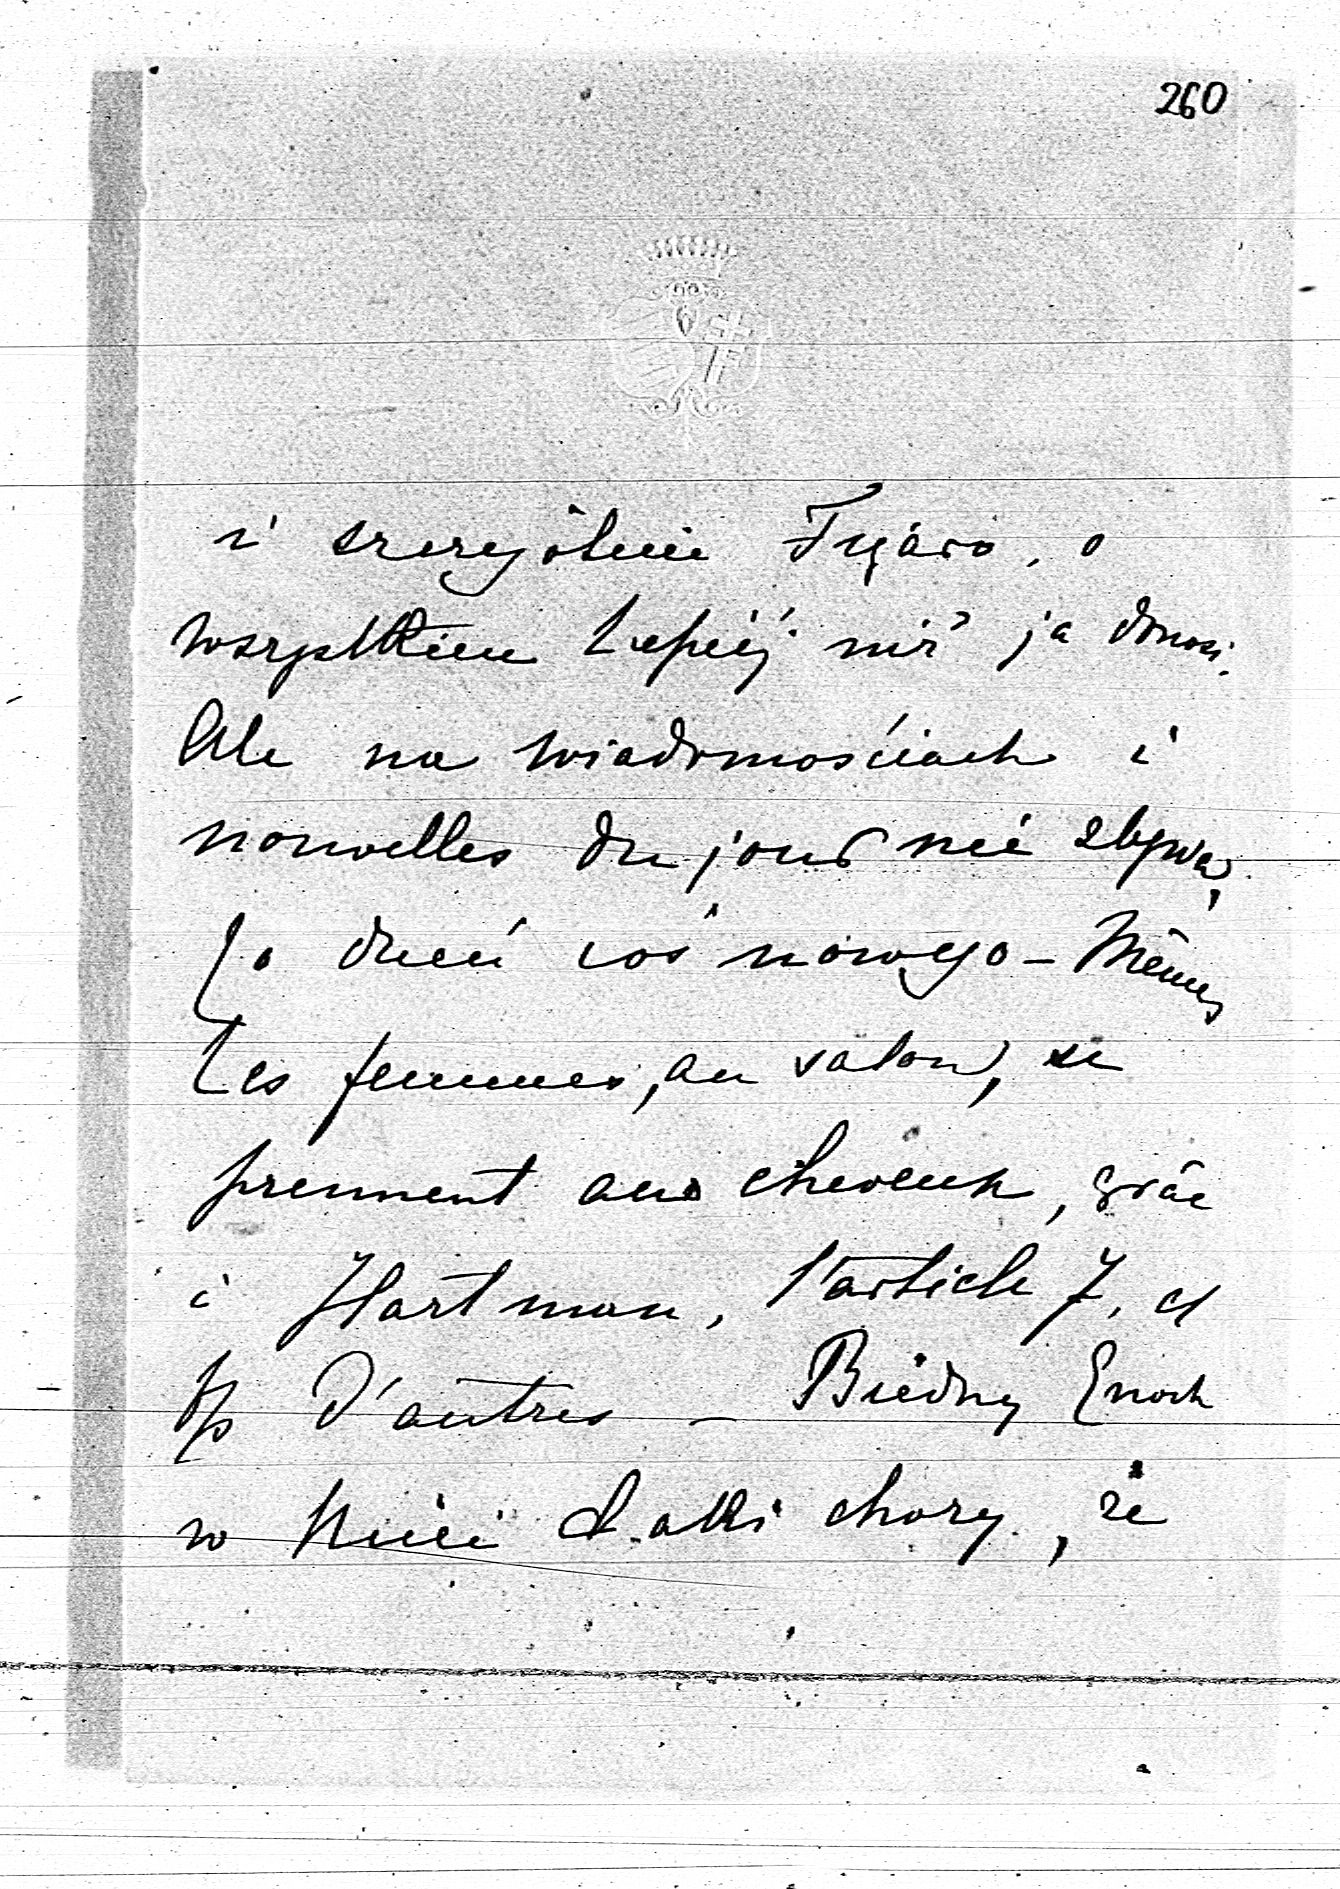 260
i szczególnie Figaro, o
wszystkiem lepiéj niż ja donosi.
Ale na wiadomościach i
nouvelles du jour nie zbywa,
Co dzień coś nowego – Mêmes
les femmes, au salon, se
prennent aux cheveux, grâce
à Hartman, l'article 7, et
d'autres – Biedny Enoch
w Nicei taki chory, że